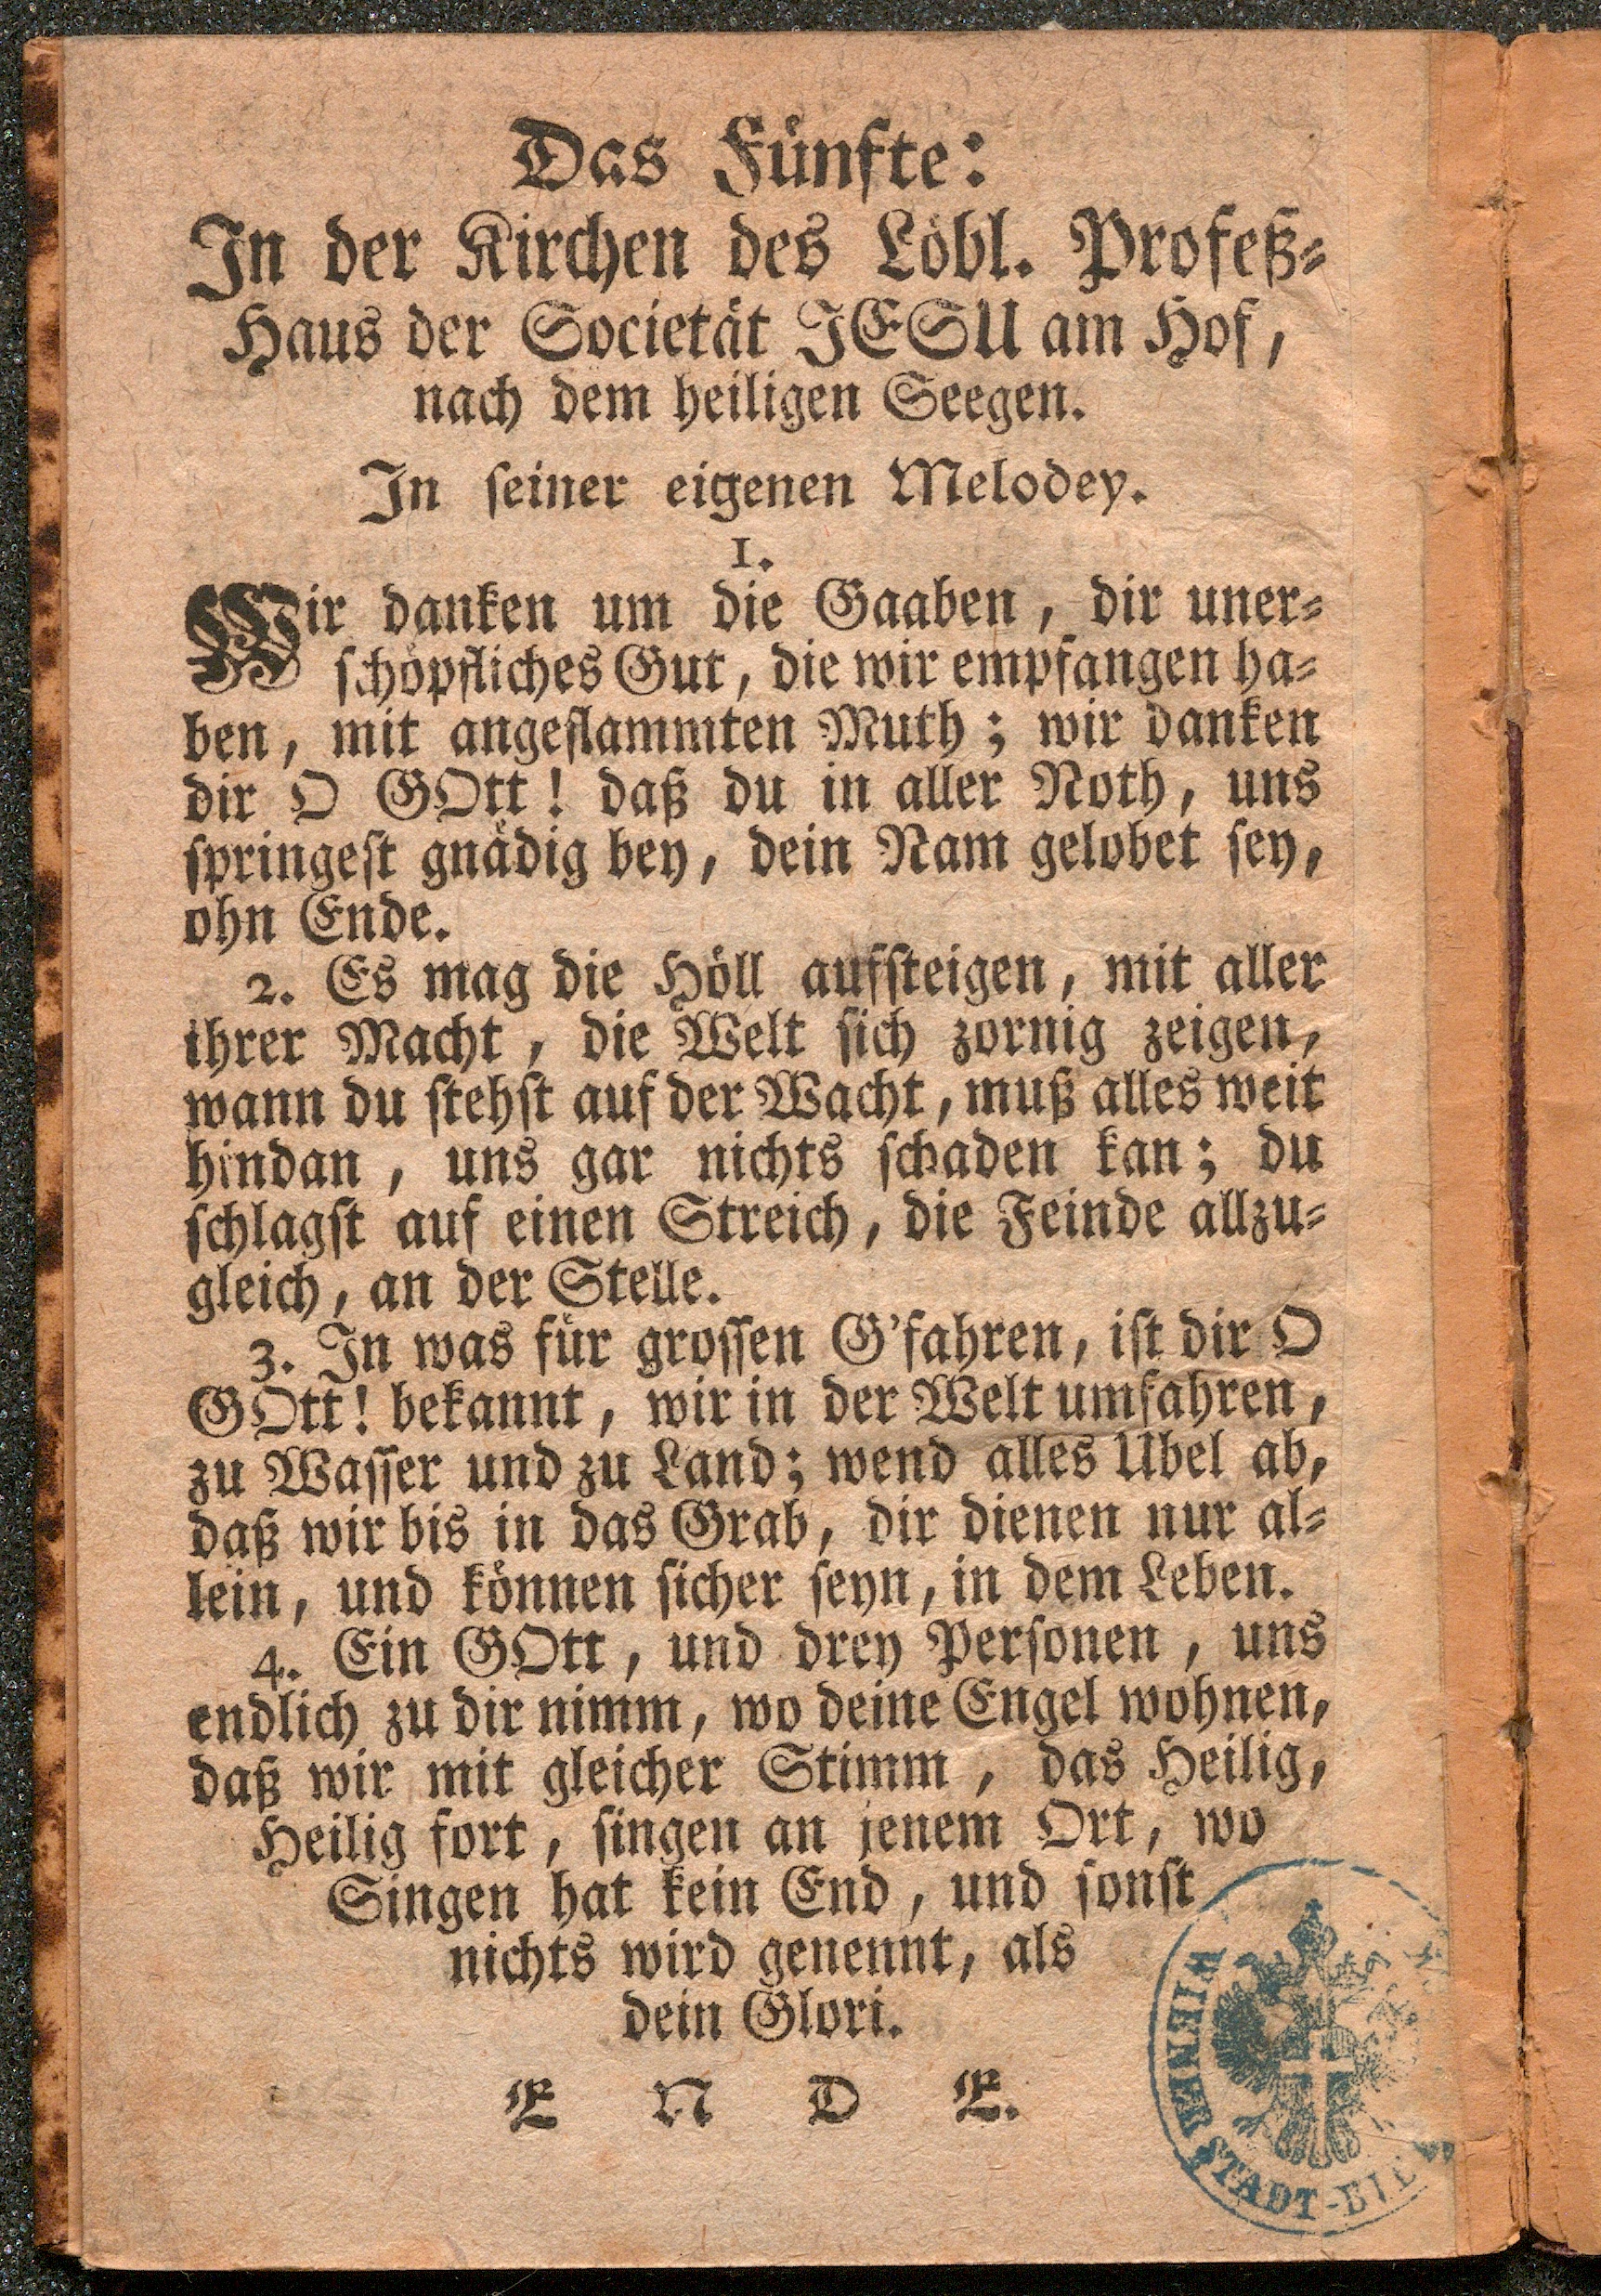 Das Fünfte:
In der Kirchen des Löbl. Profeß-
Haus der Societät JESU am Hof,
nach dem heiligen Seegen.
In seiner eigenen Melodey.
1.
Wir danken um die Gaaben, dir uner-
schöpfliches Gut, die wir empfangen ha-
ben, mit angeflammten Muth; wir danken
dir O GOtt! daß du in aller Noth, uns
springest gnädig bey, dein Nam gelobet sey,
ohn Ende.
2. Es mag die Höll aufsteigen, mit aller
ihrer Macht, die Welt sich zornig zeigen,
wann du stehst auf der Wacht, muß alles weit
hindan, uns gar nichts schaden kan; du
schlagst auf einen Streich, die Feinde allzu-
gleich, an der Stelle.
3. In was für grossen G'fahren, ist dir O
GOtt! bekannt, wir in der Welt umfahren,
zu Wasser und zu Land; wend alles Ubel ab,
daß wir bis in das Grab, dir dienen nur al-
lein, und können sicher seyn, in dem Leben.
4. Ein GOtt, und drey Personen, uns
endlich zu dir nimm, wo deine Engel wohnen,
daß wir mit gleicher Stimm, das Heilig,
Heilig fort, singen an jenem Ort, wo
Singen hat kein End, und sonst
nichts wird genennt, als
dein Glori.
E N D E.
WIENER STADT-BI